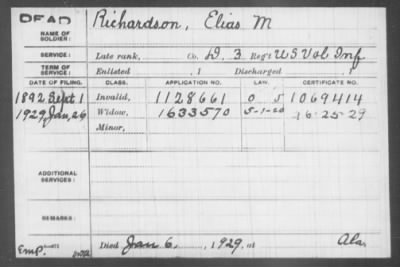 DEAD
Richardson, Elias M
NAME OF SOLDIER:
SERVICE: Late rank, Co. D. 3 Reg't US Vol Inf
TERM OF SERVICE: Enlisted , 1 Discharged , 1
DATE OF FILING. CLASS. APPLICATION NO. LAW. CERTIFICATE NO.
1892 Sept 1 Invalid, 1128661 1069414
1929, Jan, 26 Widow, 1633570 5-1-20 16-25-29
Minor,
ADDITIONAL SERVICES:
REMARKS:
Emp. Died Jan 6, 1929, at Ala